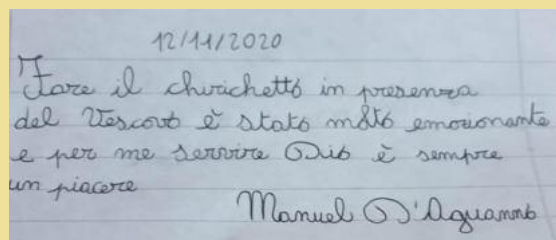 12/11/2020
Fare il chirichetto in presenza
del Vescovo è stato molto emozionante
e per me servire Dio è sempre
un piacere
Manuel D'Aguanno